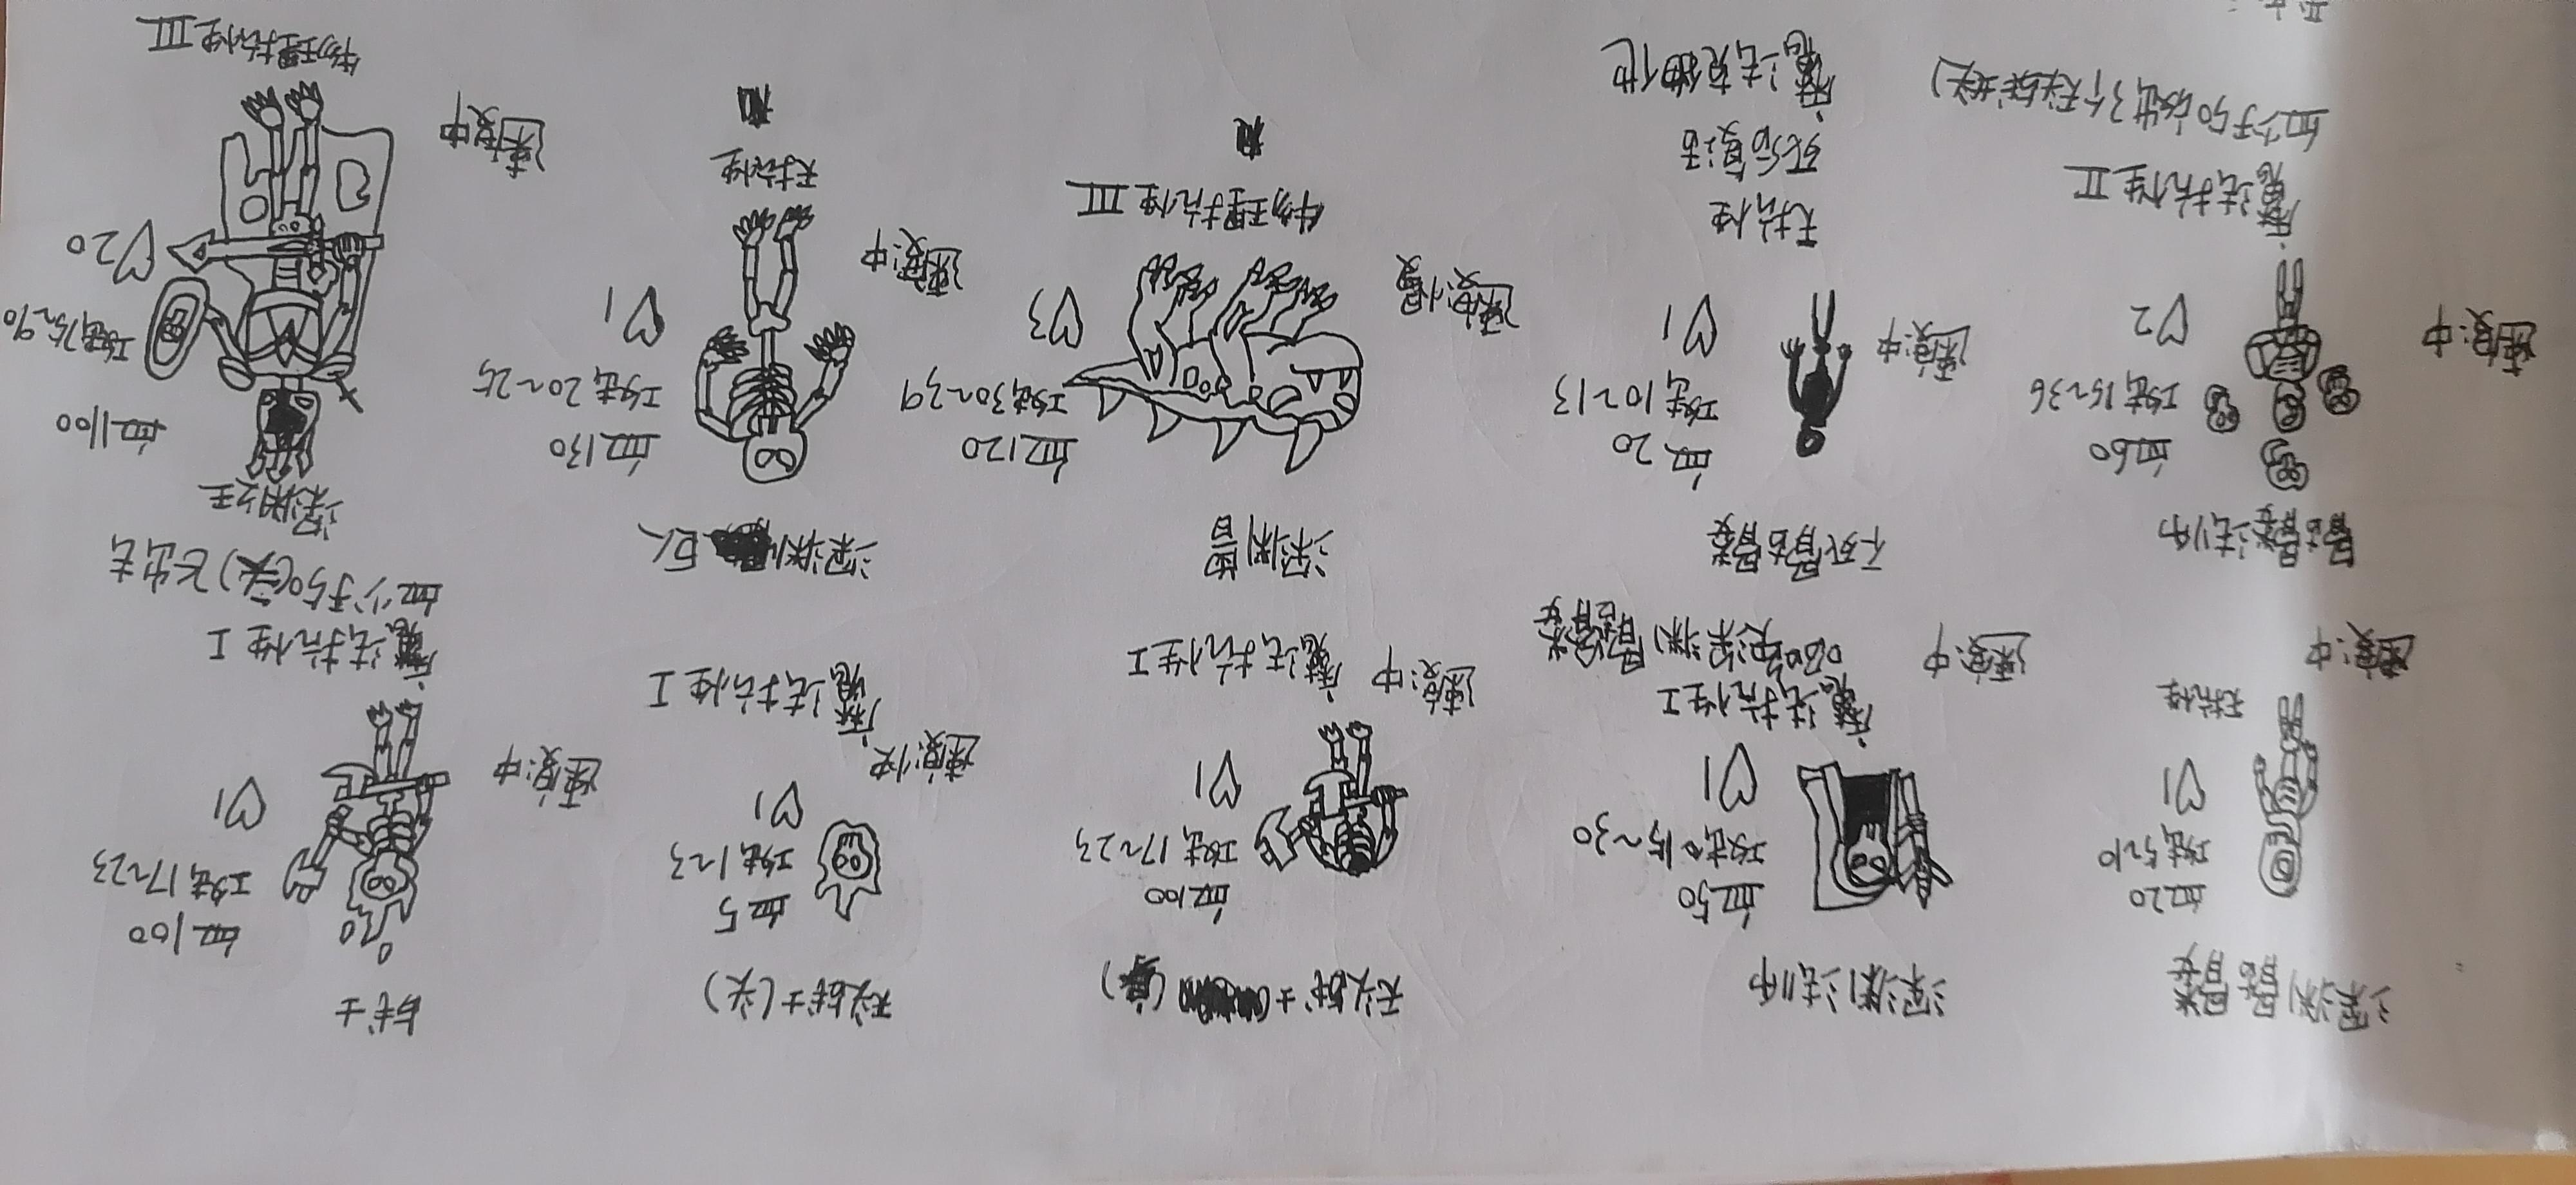 深渊骷髅
血20
攻击5~10
♡1
无抗性
速度:中
深渊法师
血50
攻击15~30
♡1
魔法抗性I
速度:中
战士(身)
血100
攻击17~23
♡1
魔法抗性I
速度:中
战士(头)
血5
攻击1~3
♡1
魔法抗性I
速度:快
战士
血100
攻击17~23
♡1
魔法抗性I
速度:中
血少于50(头)飞出去
骷髅法师
血60
攻击15~36
♡2
魔法抗性II
速度:中
血少于50
不死骷髅
血20
攻击10~13
♡1
无抗性
死后复活
魔法克制他
速度:中
深渊兽
血120
攻击30~39
♡3
物理抗性III
速度:慢
深渊巨人
血130
攻击20~25
♡1
无抗性
速度:中
深渊之王
血1100
攻击75~90
♡20
物理抗性III
速度:中